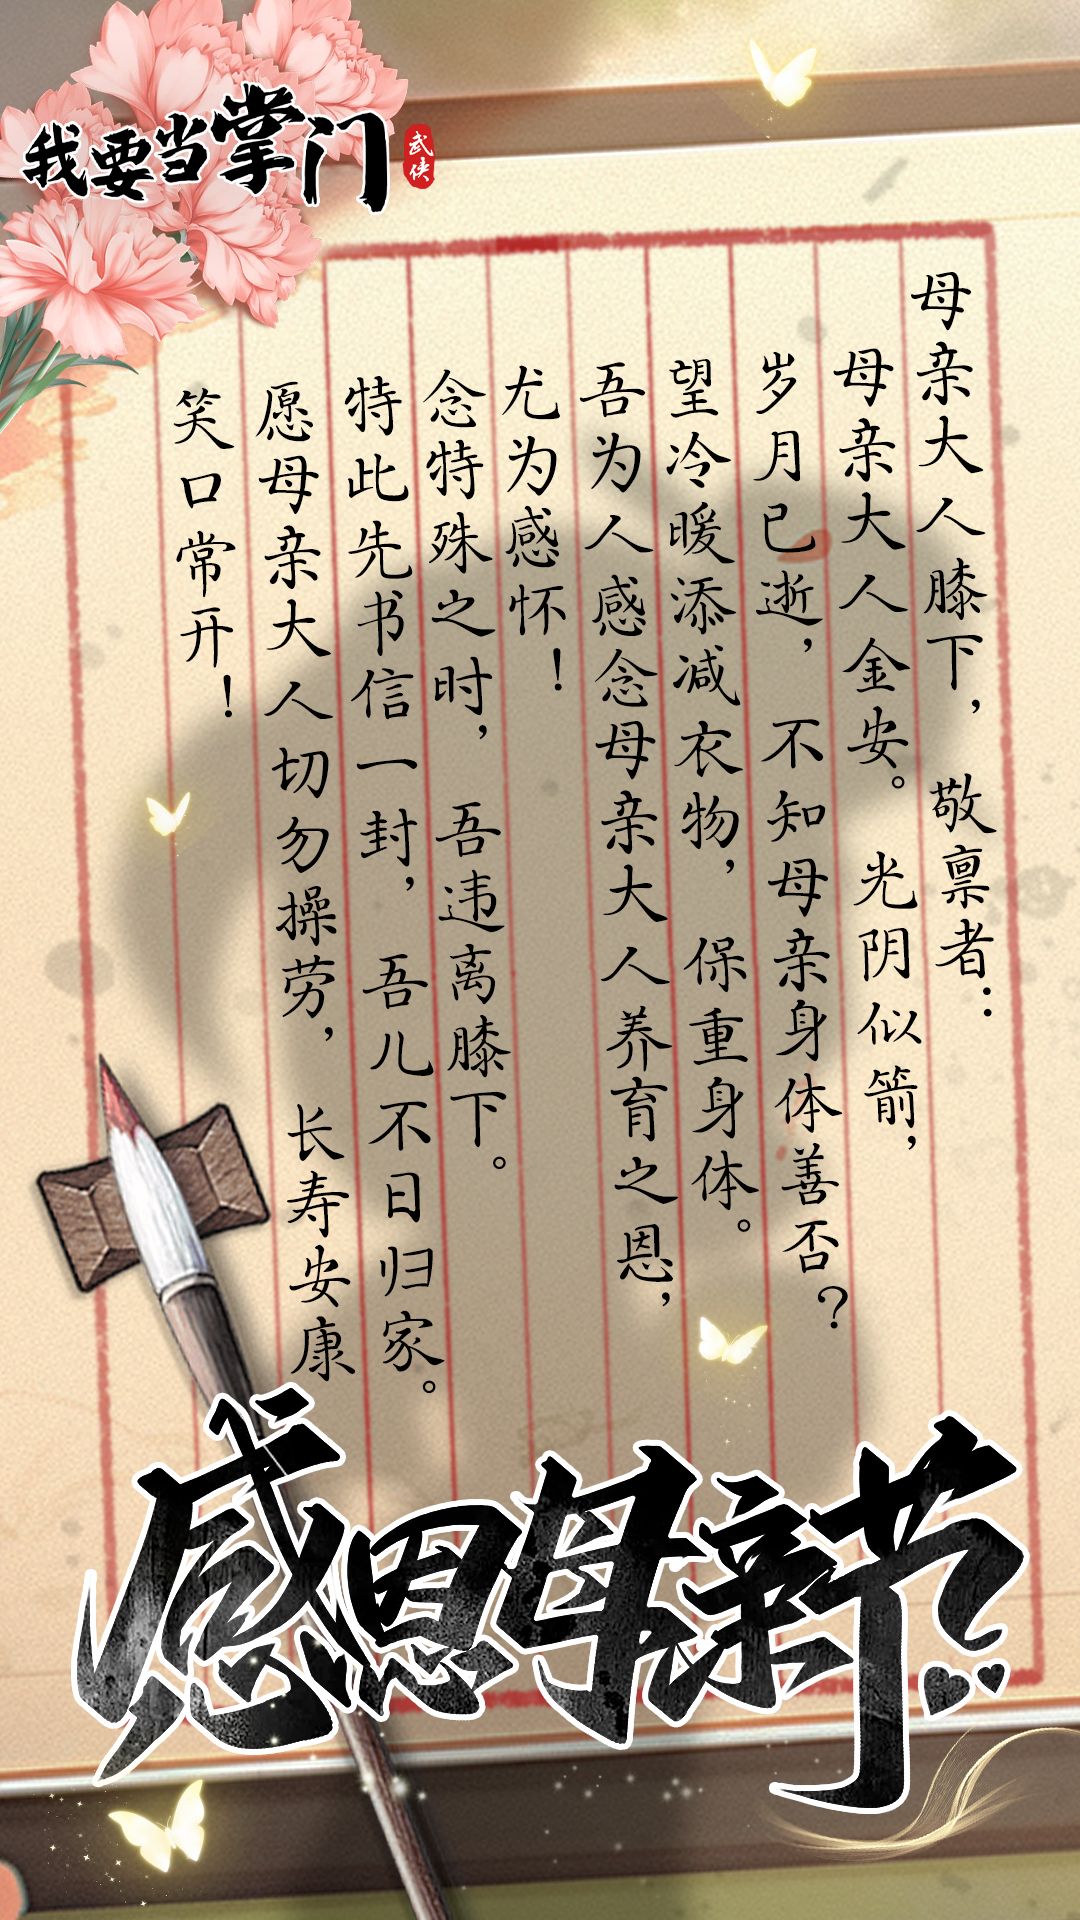 我要当掌门
武侠
母亲大人膝下，敬禀者：
母亲大人金安。光阴似箭，
岁月已逝，不知母亲身体善否？
望冷暖添减衣物，保重身体。
吾为人感念母亲大人养育之恩，
尤为感怀！
念特殊之时，吾违离膝下。
特此先书信一封，吾儿不日归家。
愿母亲大人切勿操劳，长寿安康
笑口常开！
感恩母亲节